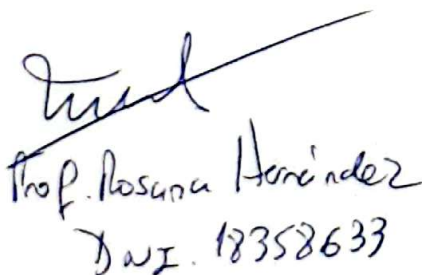 Prof. Rosana Hernández
DNI. 18358633